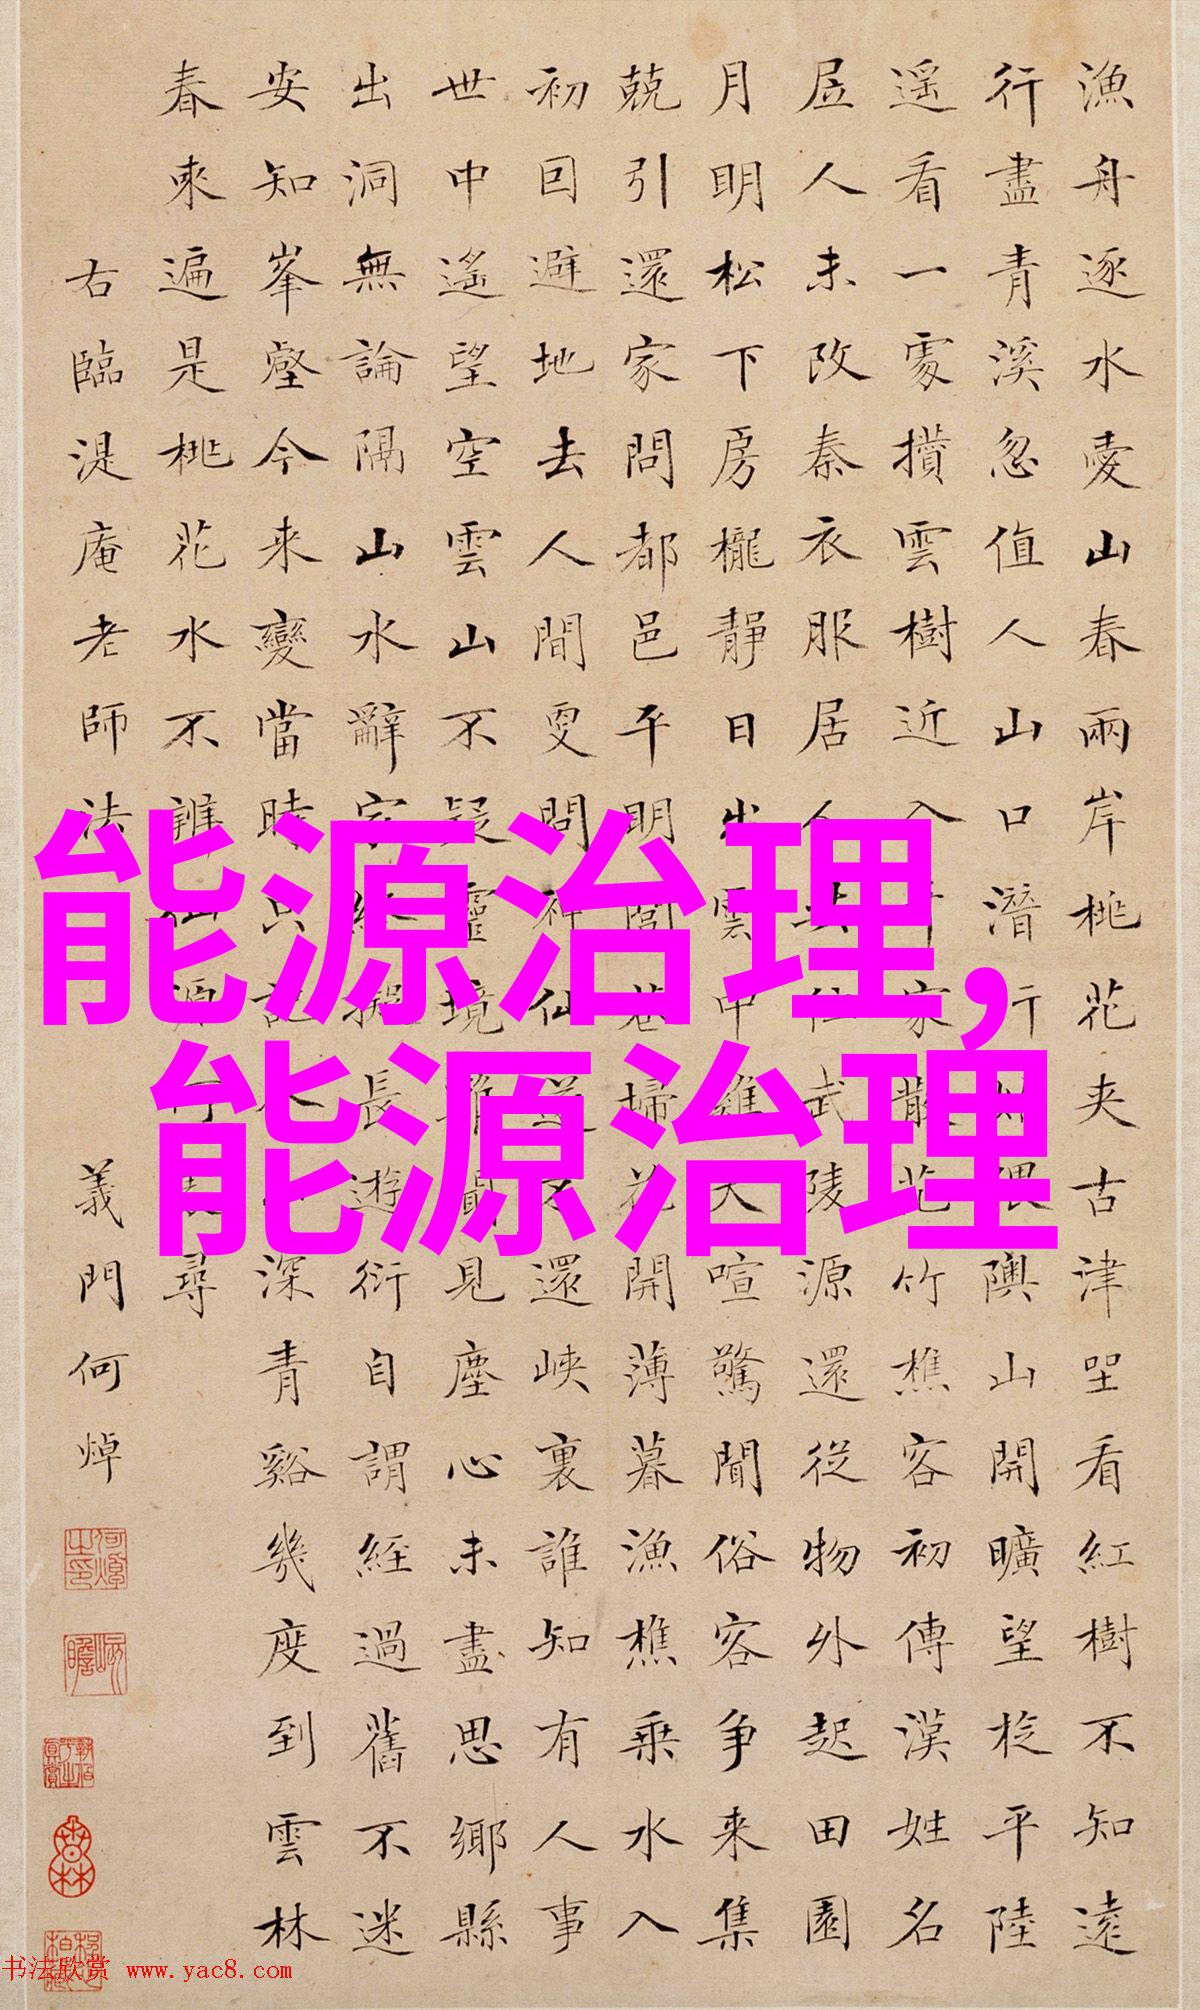 漁舟逐水愛山春兩岸桃花夾古津坐看紅樹不知遠
行盡青溪忽值人山口潛行隈隩山開曠望旋平陸
遥看一處攢雲樹近入家散花竹樵客初傳漢姓名
居人未改秦衣服居人共住武陵源還從物外起田園
月明松下房櫳靜日出雲中雞犬喧驚聞俗客争来集
競引還家問都邑平明閭巷掃花開薄暮漁樵乗水入
初因避地去人間更問神仙遂不還峽裏誰知有人事
世中遙望空雲山不疑靈境難聞見塵心未盡思鄉縣
出洞無論隔山水辭家終擬長遊衍自謂經過舊不迷
安知峯壑今来變當時只記入山深青谿幾度到雲林
春來遍是桃花水不辨仙源何處尋
右臨湜庵老師法 義門何焯
能源治理,
能源治理
书法欣赏 www.yac8.com